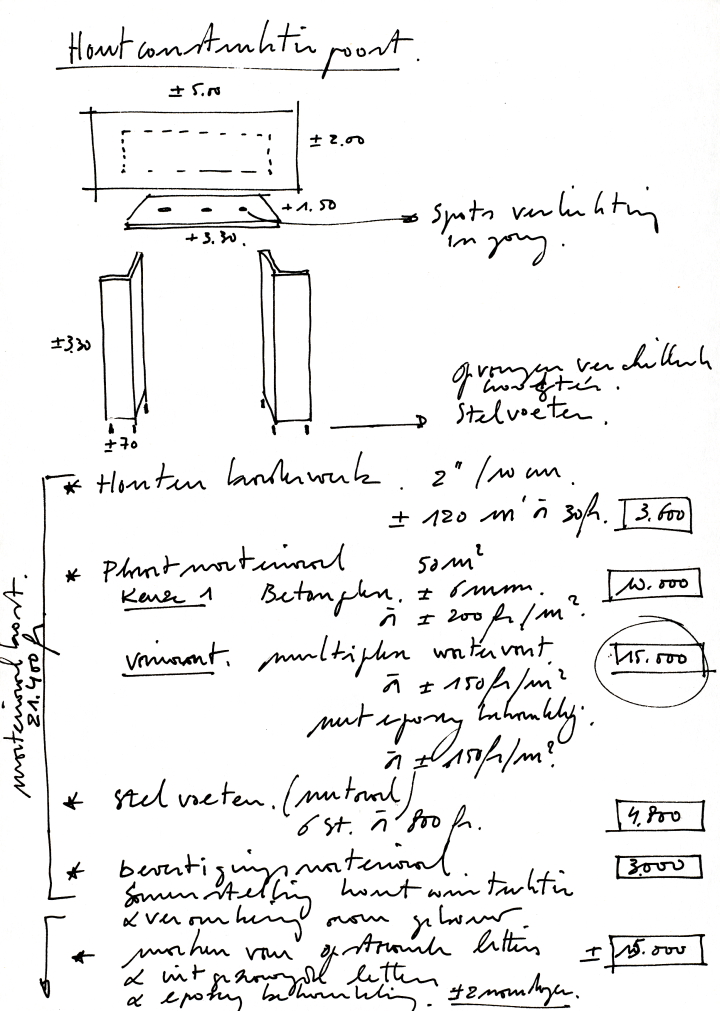 Houtconstruktie poort.
± 5.00
± 2.00
± 1.50
Spots verlichting
in gang.
± 3.30.
± 3.30
opvangen verschillende
hoogten.
Stelvoeten.
± 70
* Houten kaderwerk. 2" / 10 cm.
± 120 m' à 30 fr. 3.600
* Plaatmateriaal 50 m²
Keuze 1 Betonplex. ± 6 mm. 10.000
à ± 200 fr/m².
Variant. multiplex watervast 15.000
à ± 150 fr/m²
met epoxy behandeling.
à ± 150 fr/m².
* Stelvoeten. (metaal)
6 st. à 800 fr. 4.800
* bevestigingsmateriaal. 3.000
Samenstelling houtconstruktie
& verankering aan gebouw
* maken van opstaande letters ± 15.000
& uitgezaagde letters
& epoxy behandeling. ± 2
materiaal kost.
21.400 fr